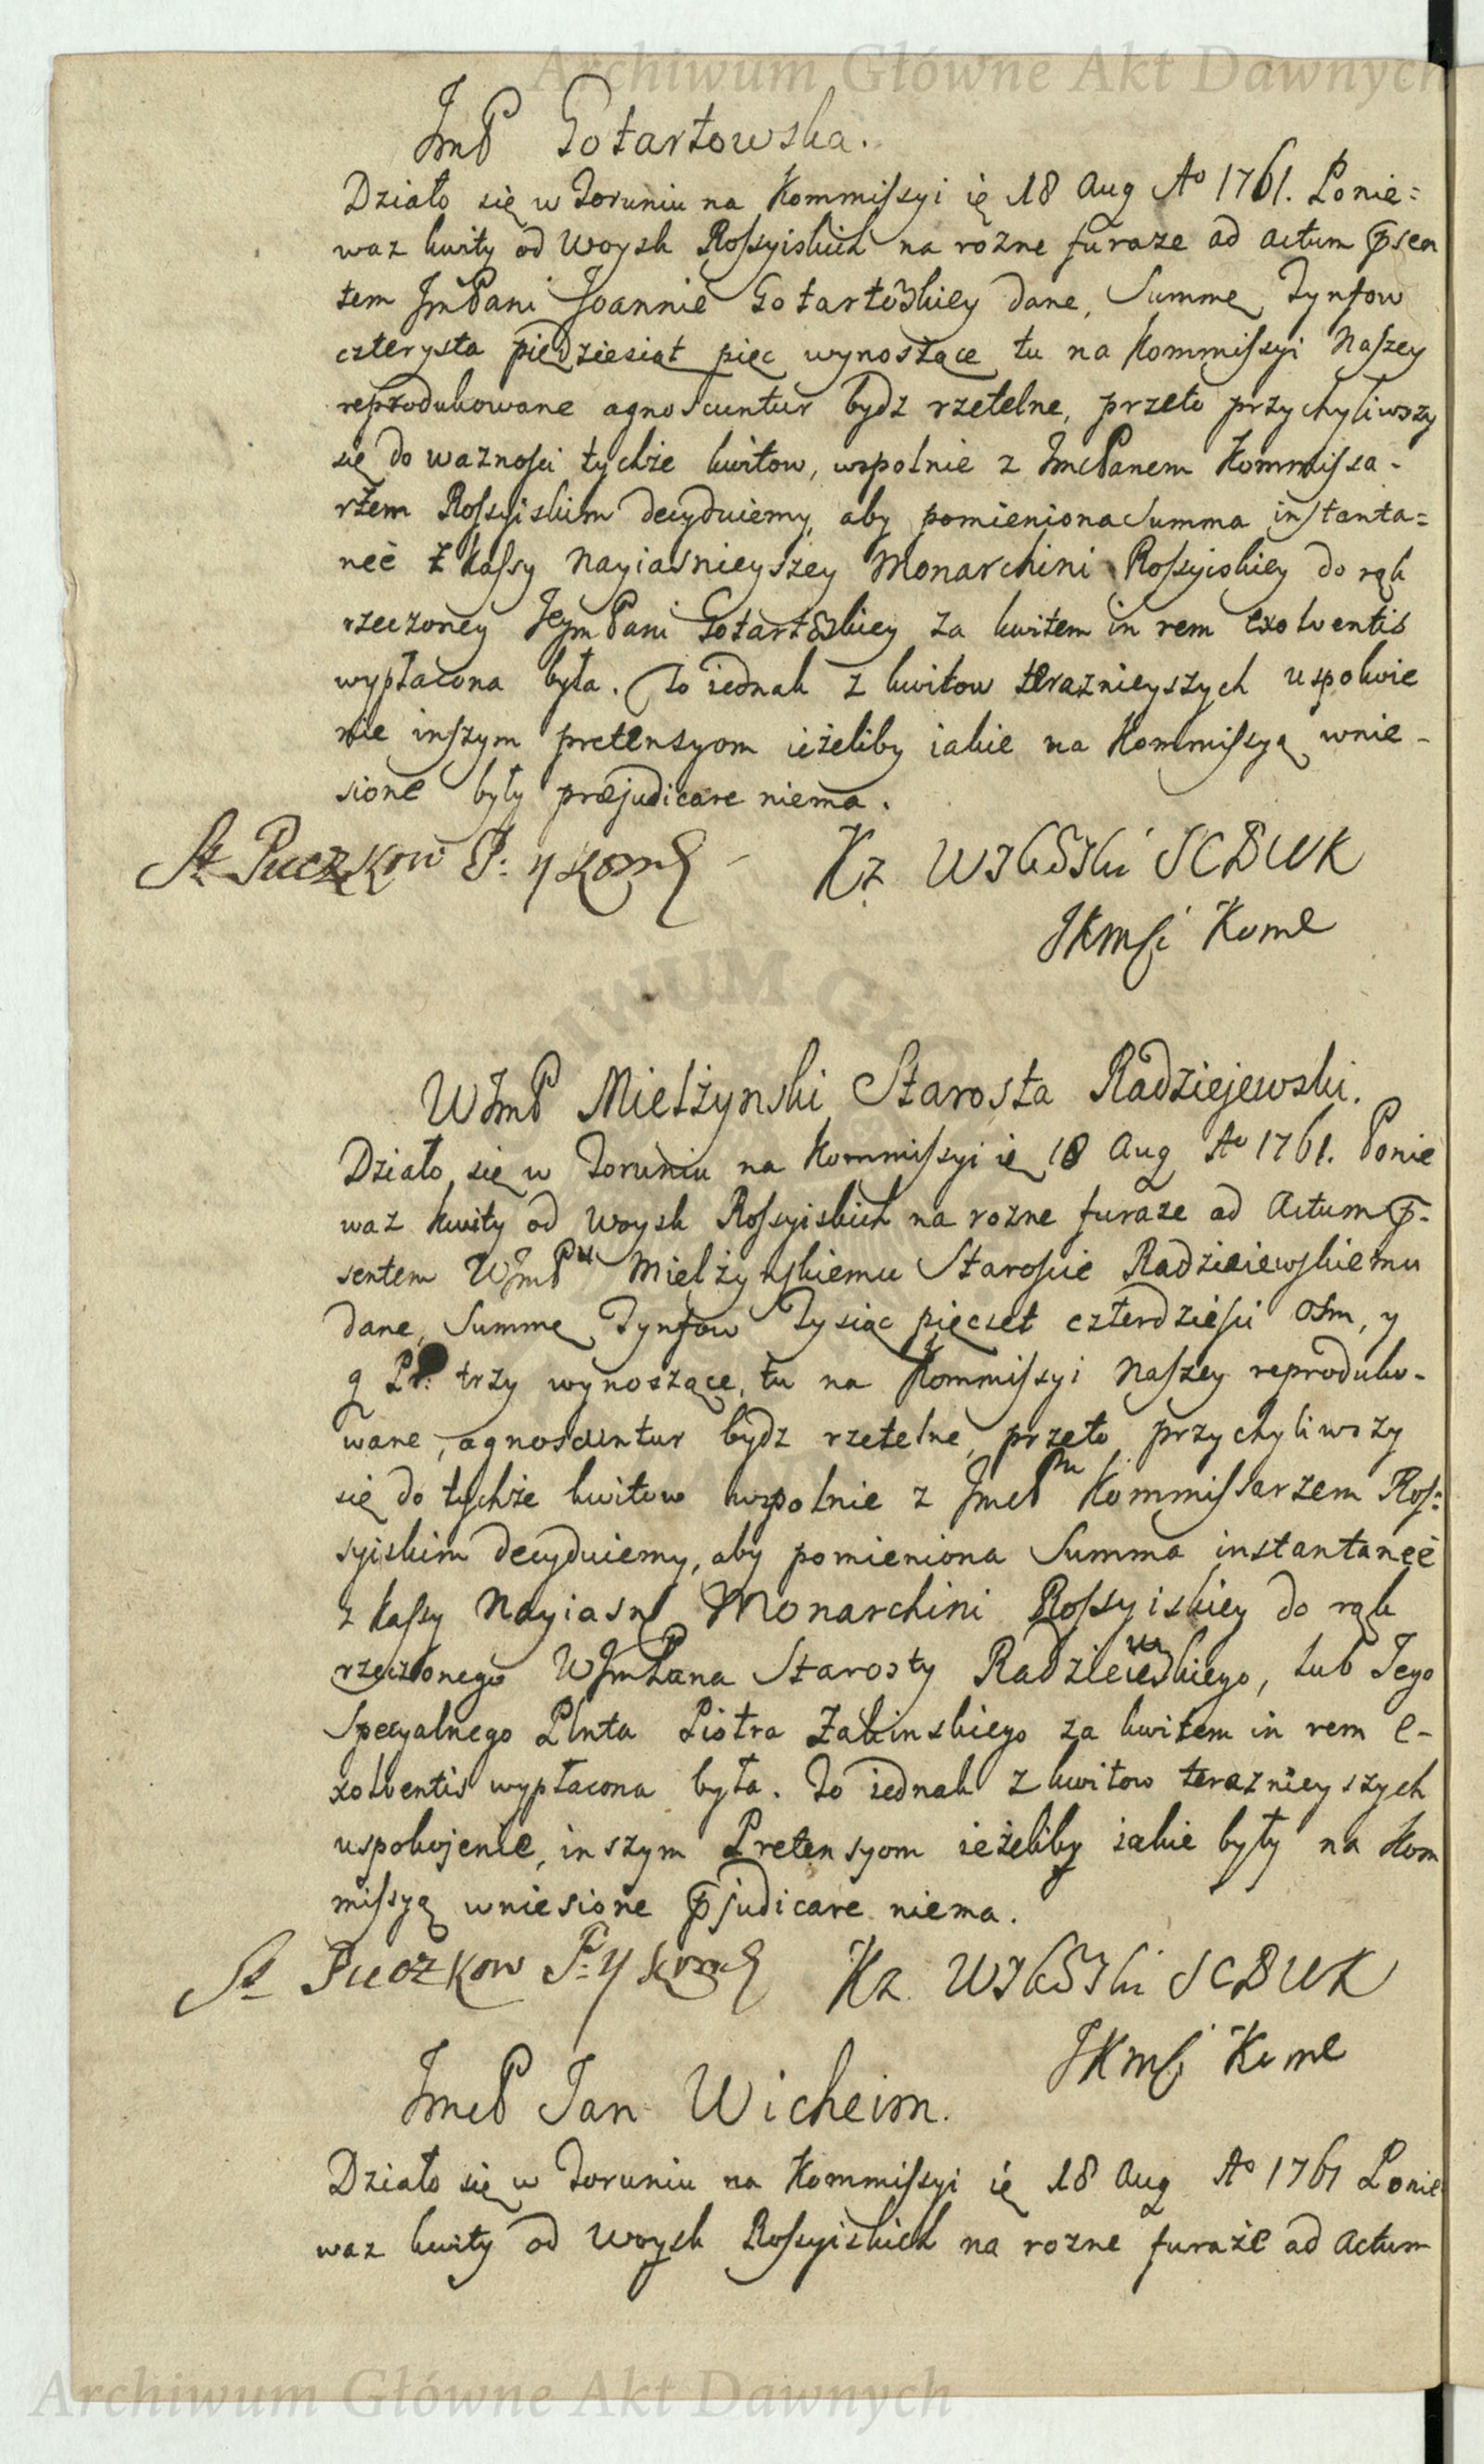 Archiwum Główne Akt Dawnych
JmP Gotartowska.
Działo się w Toruniu na Kommissyi ię 18 Aug Ao 1761. Ponie=
waz kwity od Woysk Rossyiskich na rozne furaze ad actum psen
tem JmPani Joannie Gotartoskiey dane, Summę Tynfow
czterysta piędziesiąt pięc wynosżące tu na Kommissyi Naszey
reprodukowane agnoscuntur bydz rzetelne, przeto przychyliwszy
się do waznosci tychże kwitow, wspolnie z JmcPanem Kommissa-
rżem Rossyiskim decyduiemy, aby pomieniona Summa instanta=
neè z kassy Nayiasnieyszey Monarchini Rossyiskiey do rąk
rzeczoney JeymPani Gotartoskiey za kwitem in rem exolventis
wypłacona była. To iednak z kwitow teraznieyszych uspokoie
nie inszym pretensyom ieżeliby iakie na Kommissyą wnie-
sione były præjudicare niema.
St Puczkow P: y Kom
Kz Wskoski SCBWK
JKMsi Kome
WJmP Mielżynski Starosta Radziejewski.
Działo się w Toruniu na Kommissyi ię 18 Aug Ao 1761. Ponie
waz kwity od Woysk Rossyiskich na rozne furaze ad Actum p-
sentem WJmPu Mielżynskiemu Staroscie Radzieiewskiemu
dane, Summę Tynfow Tysiąc pięcset czterdziesci osm, y
g Pl: trzy wynoszące, tu na Kommissyi Naszey reproduko-
wane, agnoscuntur bydz rzetelne, przeto przychyliwszy
się do tychże kwitow wspolnie z JmcPm Kommissarzem Ros=
syiskim decyduiemy, aby pomieniona Summa instantaneè
z kassy Nayiasn Monarchini Rossyiskiey do rąk
rzeczonego WJmPana Starosty Radzieiewskiego, lub Jego
Specyalnego Plnta Piotra Zabinskiego za kwitem in rem e-
xolventis wypłacona była. To iednak z kwitow teraznieyszych
uspokojenie, inszym Pretensyom ieżeliby iakie były na Kom
missyą wniesione pjudicare niema.
St Puczkow P: y Kom
Kz Wskoski SCBWK
JKMsi Kome
JmcP Jan Wicheim.
Działo się w Toruniu na Kommissyi ię 18 Aug Ao 1761 Ponie
waz kwity od Woysk Rossyiskich na rozne furaże ad Actum
Archiwum Główne Akt Dawnych